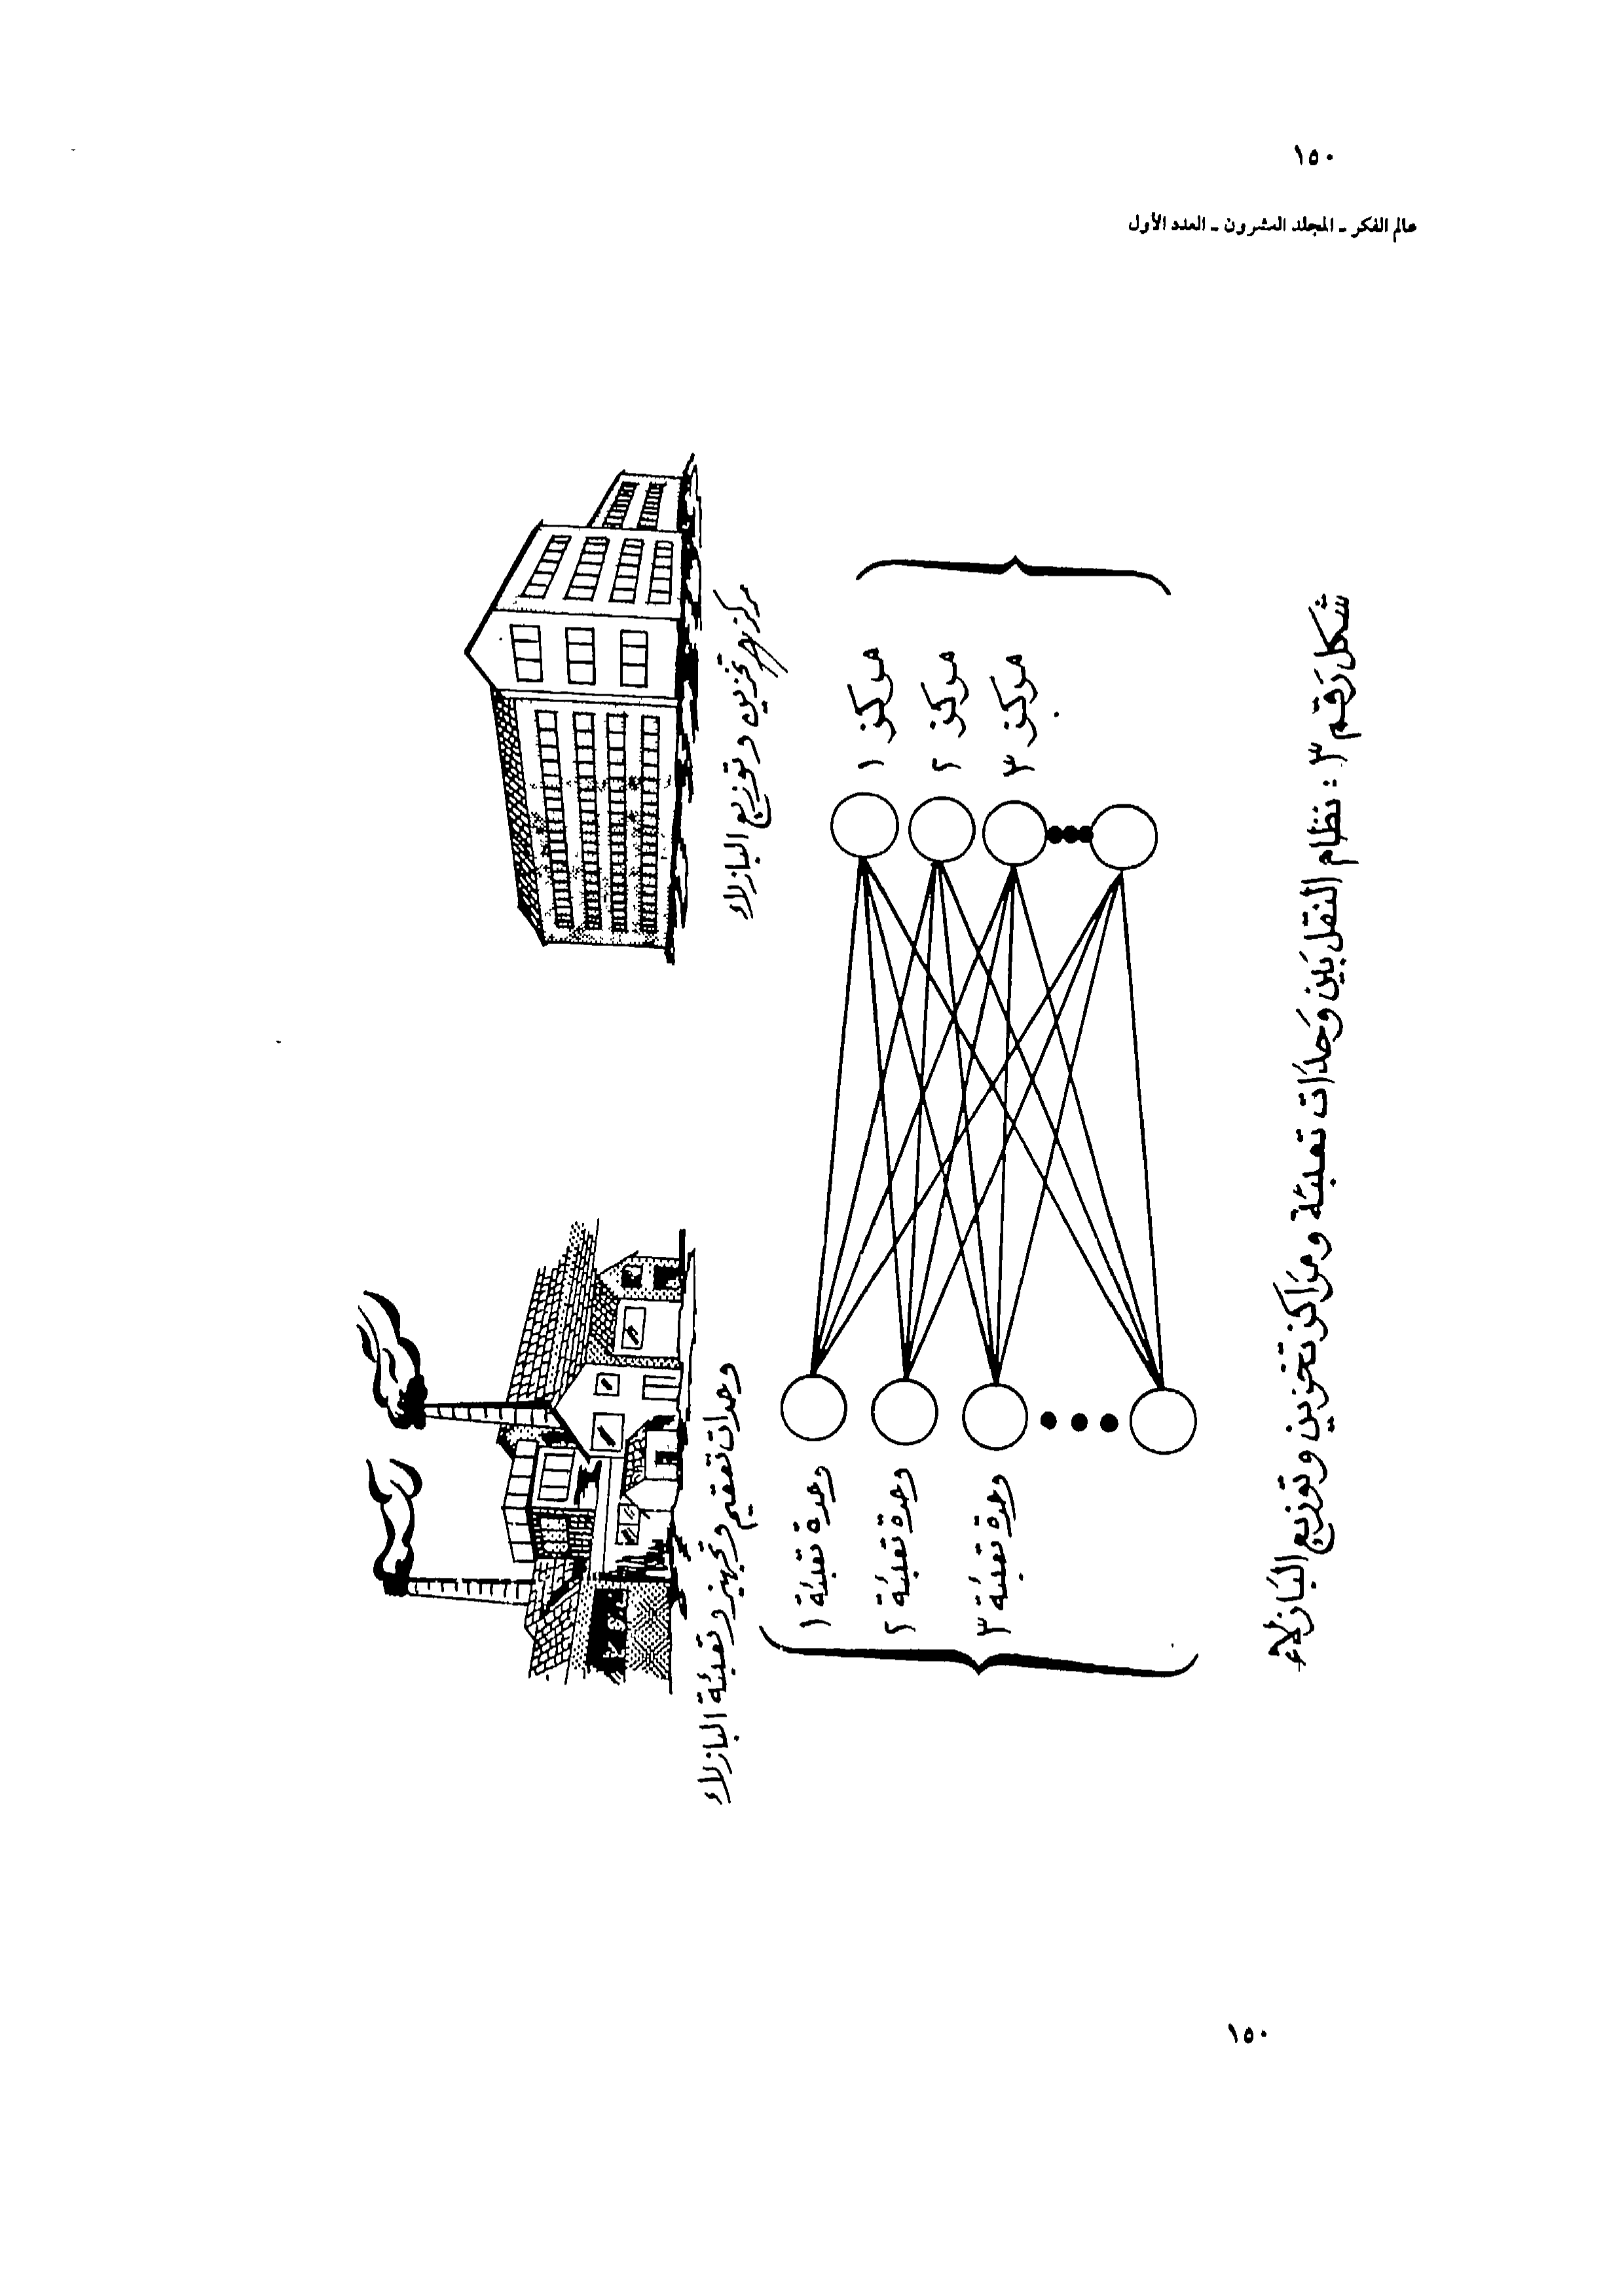 ١٥٠
عالم الفكر ـ المجلد العشرون ـ العدد الأول
مركز تخزين وتوزيع البازلاء
وحدات تعقيم وتجهيز وتعبئة البازلاء
مركز ١
مركز ٢
مركز ٣
وحدة تعبئة ١
وحدة تعبئة ٢
وحدة تعبئة ٣
شكل رقم ٣ : نظام النقل بين وحدات تعبئة ومراكز تخزين وتوزيع البازلاء
١٥٠